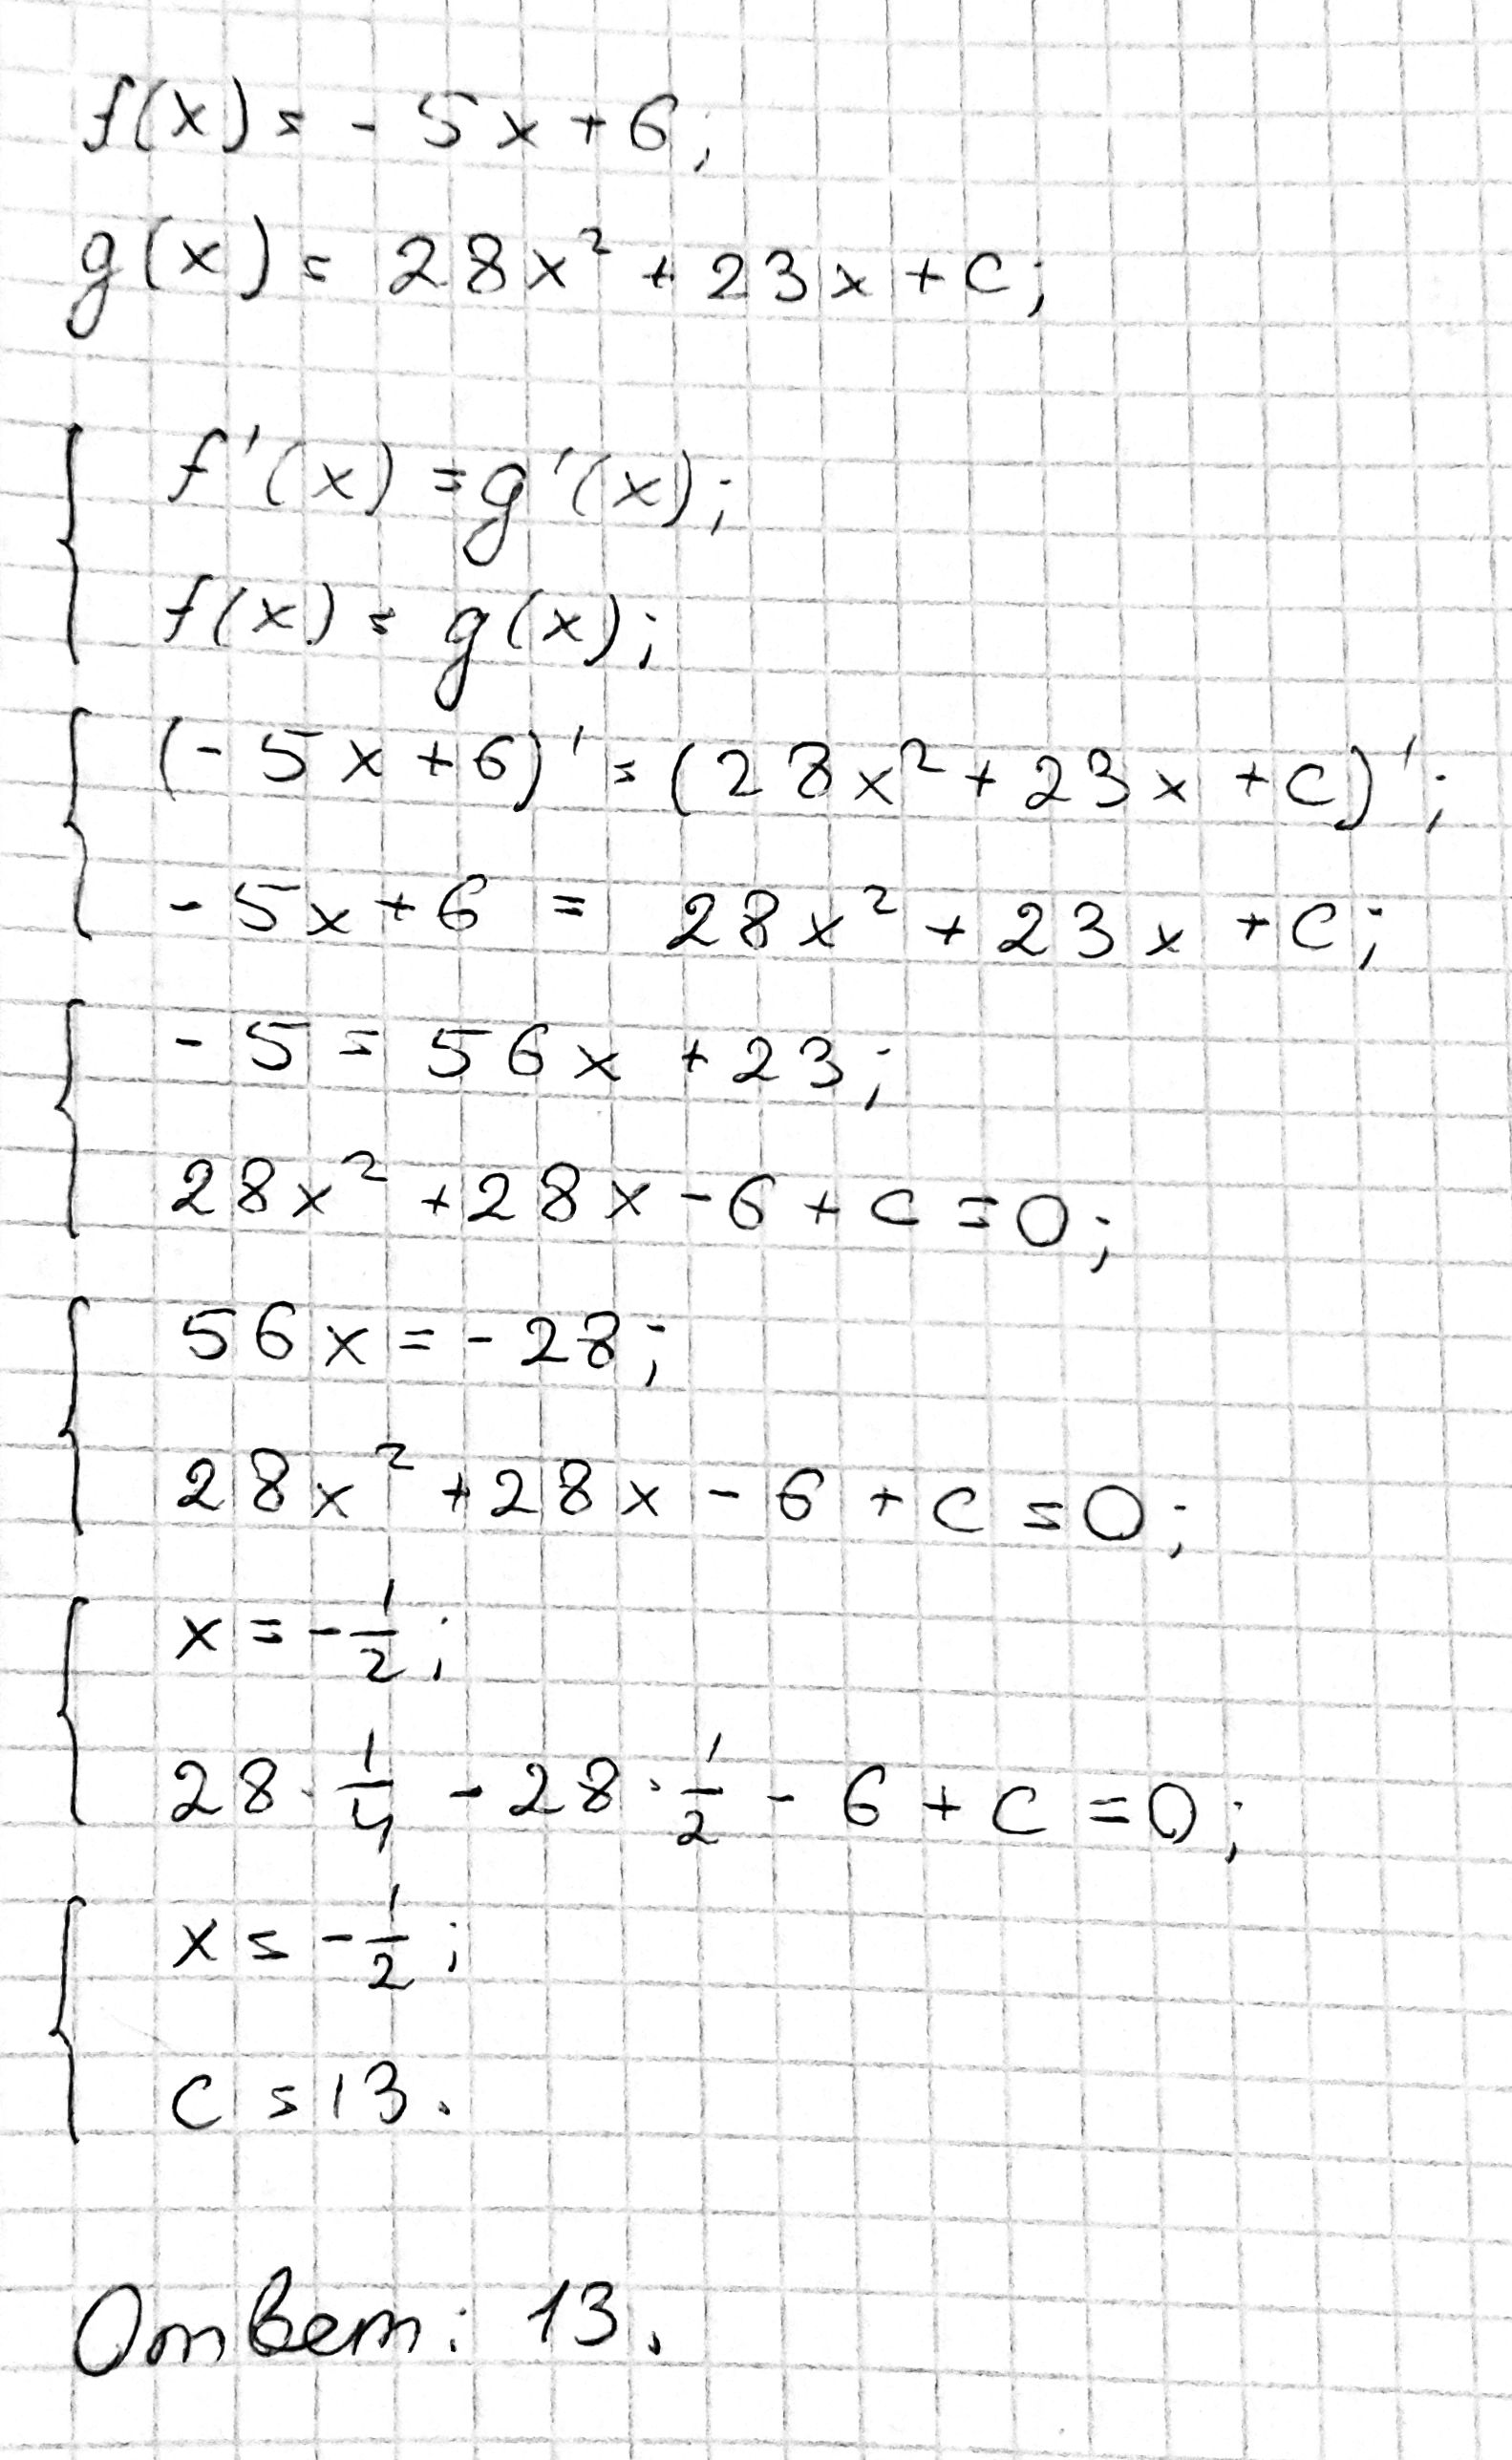 f(x) = - 5x + 6;
g(x) = 28x² + 23x + c;
f'(x) = g'(x);
f(x) = g(x);
(- 5x + 6)' = (28x² + 23x + c)';
- 5x + 6 = 28x² + 23x + c;
- 5 = 56x + 23;
28x² + 28x - 6 + c = 0;
56x = - 28;
28x² + 28x - 6 + c = 0;
x = - 1/2;
28 · 1/4 - 28 · 1/2 - 6 + c = 0;
x = - 1/2;
c = 13.
Ответ: 13.